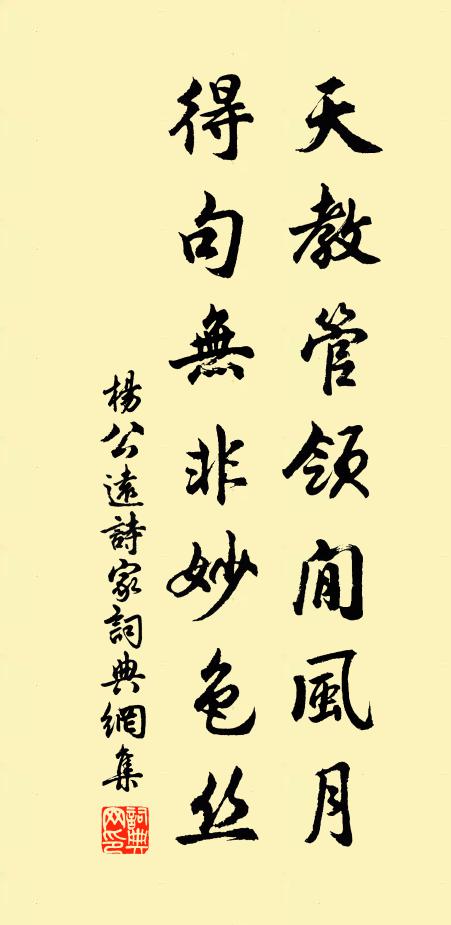 天教管領閒風月
得句無非妙色丝
楊公遠詩家詞典網集
詞典網印